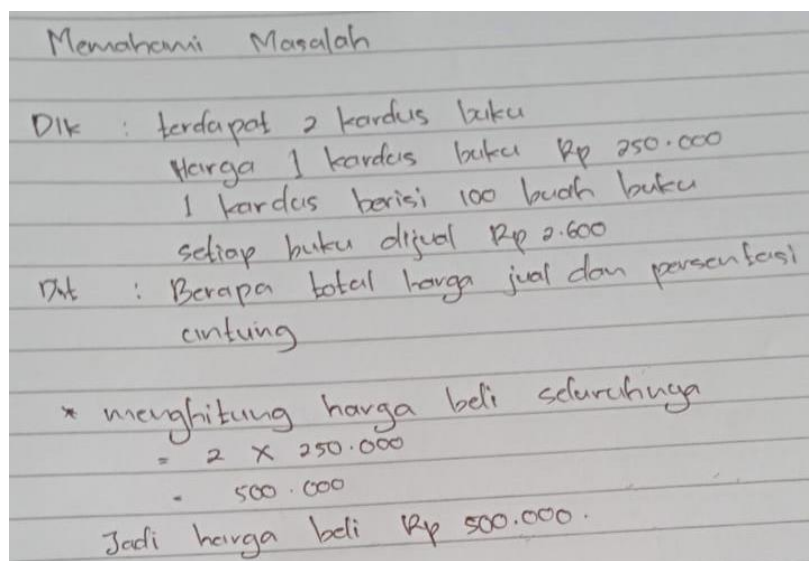 Memahami Masalah
Dik : terdapat 2 kardus buku
Harga 1 kardus buku Rp 250.000
1 kardus berisi 100 buah buku
setiap buku dijual Rp 2.600
Dit : Berapa total harga jual dan persentasi
untung
* menghitung harga beli seluruhnya
= 2 x 250.000
= 500.000
Jadi harga beli Rp 500.000.